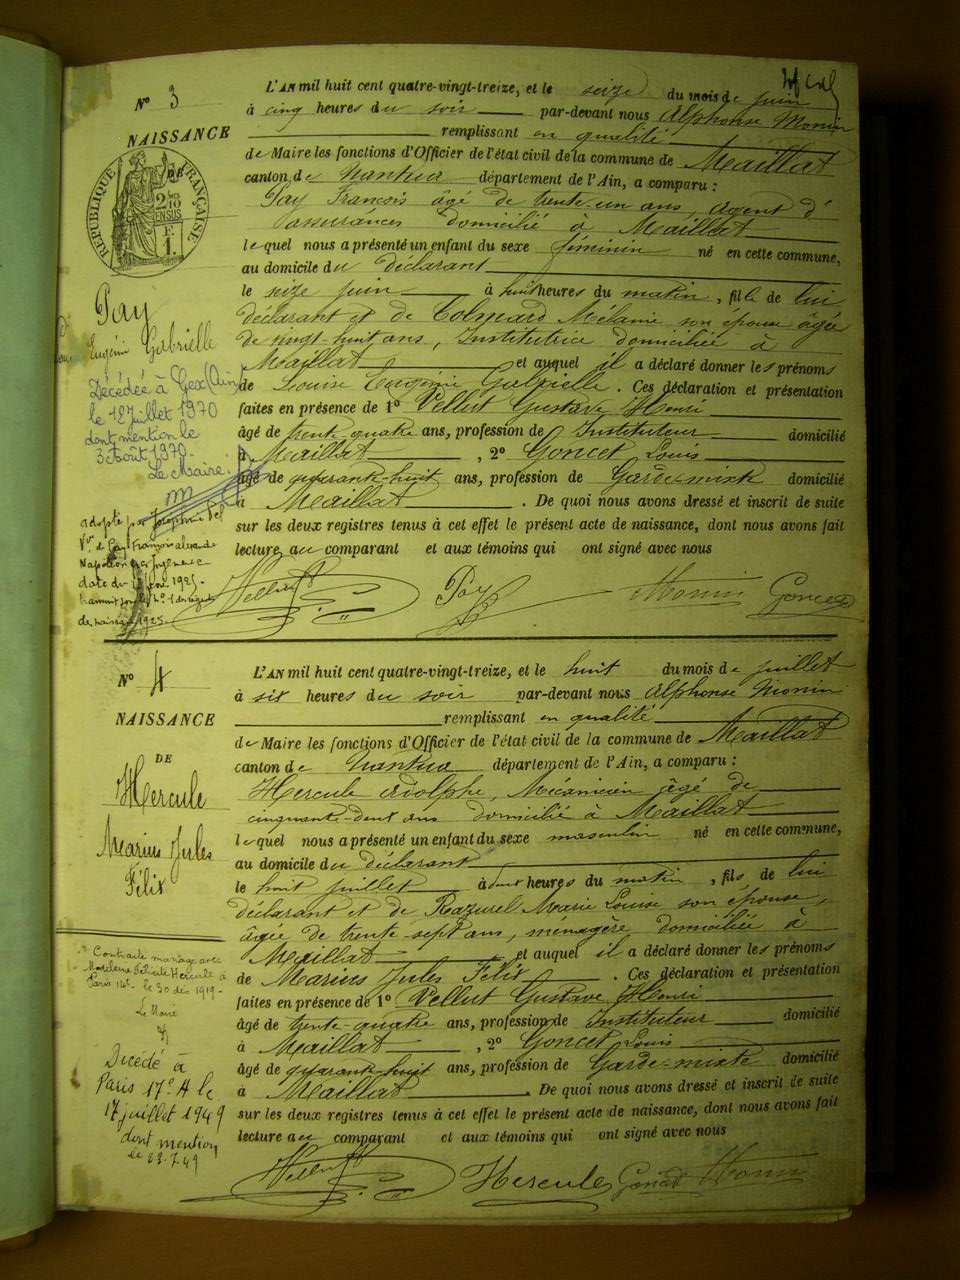 N° 3
NAISSANCE
DE
RÉPUBLIQUE FRANÇAISE
2/10 EN SUS
F. 1.
Pay
Eugénie Gabrielle
Décédée à Gex (Ain)
le 12 juillet 1970
dont mention le
3 août 1970.
Le Maire.
adoptée par Joséphine
Vve de Pay François
Napoléon par jugement
de naissance 1925.
L'AN mil huit cent quatre-vingt-treize, et le seize du mois de juin
à cinq heures du soir par-devant nous Alphonse Monin
remplissant en qualité
de Maire les fonctions d'Officier de l'état civil de la commune de Maillat
canton de Nantua département de l'Ain, a comparu :
Pay François âgé de trente-un ans, Agent d'
assurances domicilié à Maillat
lequel nous a présenté un enfant du sexe féminin né en cette commune,
au domicile du déclarant
le seize juin à huit heures du matin, fille de lui
déclarant et de Colmard Mélanie son épouse âgée
de vingt-huit ans, Institutrice domiciliée à
Maillat et auquel il a déclaré donner les prénoms
de Louise Eugénie Gabrielle. Ces déclaration et présentation
faites en présence de 1° Vellut Gustave Henri
âgé de trente quatre ans, profession de Instituteur domicilié
à Maillat, 2° Goncet Louis
âgé de quarante-huit ans, profession de Garde-mixte domicilié
à Maillat. De quoi nous avons dressé et inscrit de suite
sur les deux registres tenus à cet effet le présent acte de naissance, dont nous avons fait
lecture au comparant et aux témoins qui ont signé avec nous
Vellut Pay Monin Goncet
N° 4
NAISSANCE
DE
Hercule
Marius Jules
Félix
Contracté mariage avec
Madeleine Félicité Hercule à
Paris 14e le 30 déc 1919.
Le Maire
Décédé à
Paris 17e A le
17 juillet 1949
dont mention
le 23.7.49
L'AN mil huit cent quatre-vingt-treize, et le huit du mois de juillet
à six heures du soir par-devant nous Alphonse Monin
remplissant en qualité
de Maire les fonctions d'Officier de l'état civil de la commune de Maillat
canton de Nantua département de l'Ain, a comparu :
Hercule Adolphe, Mécanicien âgé de
cinquante-deux ans domicilié à Maillat
lequel nous a présenté un enfant du sexe masculin né en cette commune,
au domicile du déclarant
le huit juillet à deux heures du matin, fils de lui
déclarant et de Razurel Marie Louise son épouse,
âgée de trente-sept ans, ménagère domiciliée à
Maillat et auquel il a déclaré donner les prénoms
de Marius Jules Félix. Ces déclaration et présentation
faites en présence de 1° Vellut Gustave Henri
âgé de trente-quatre ans, profession de Instituteur domicilié
à Maillat, 2° Goncet Louis
âgé de quarante huit ans, profession de Garde-mixte domicilié
à Maillat. De quoi nous avons dressé et inscrit de suite
sur les deux registres tenus à cet effet le présent acte de naissance, dont nous avons fait
lecture au comparant et aux témoins qui ont signé avec nous
Vellut Hercule Goncet Monin